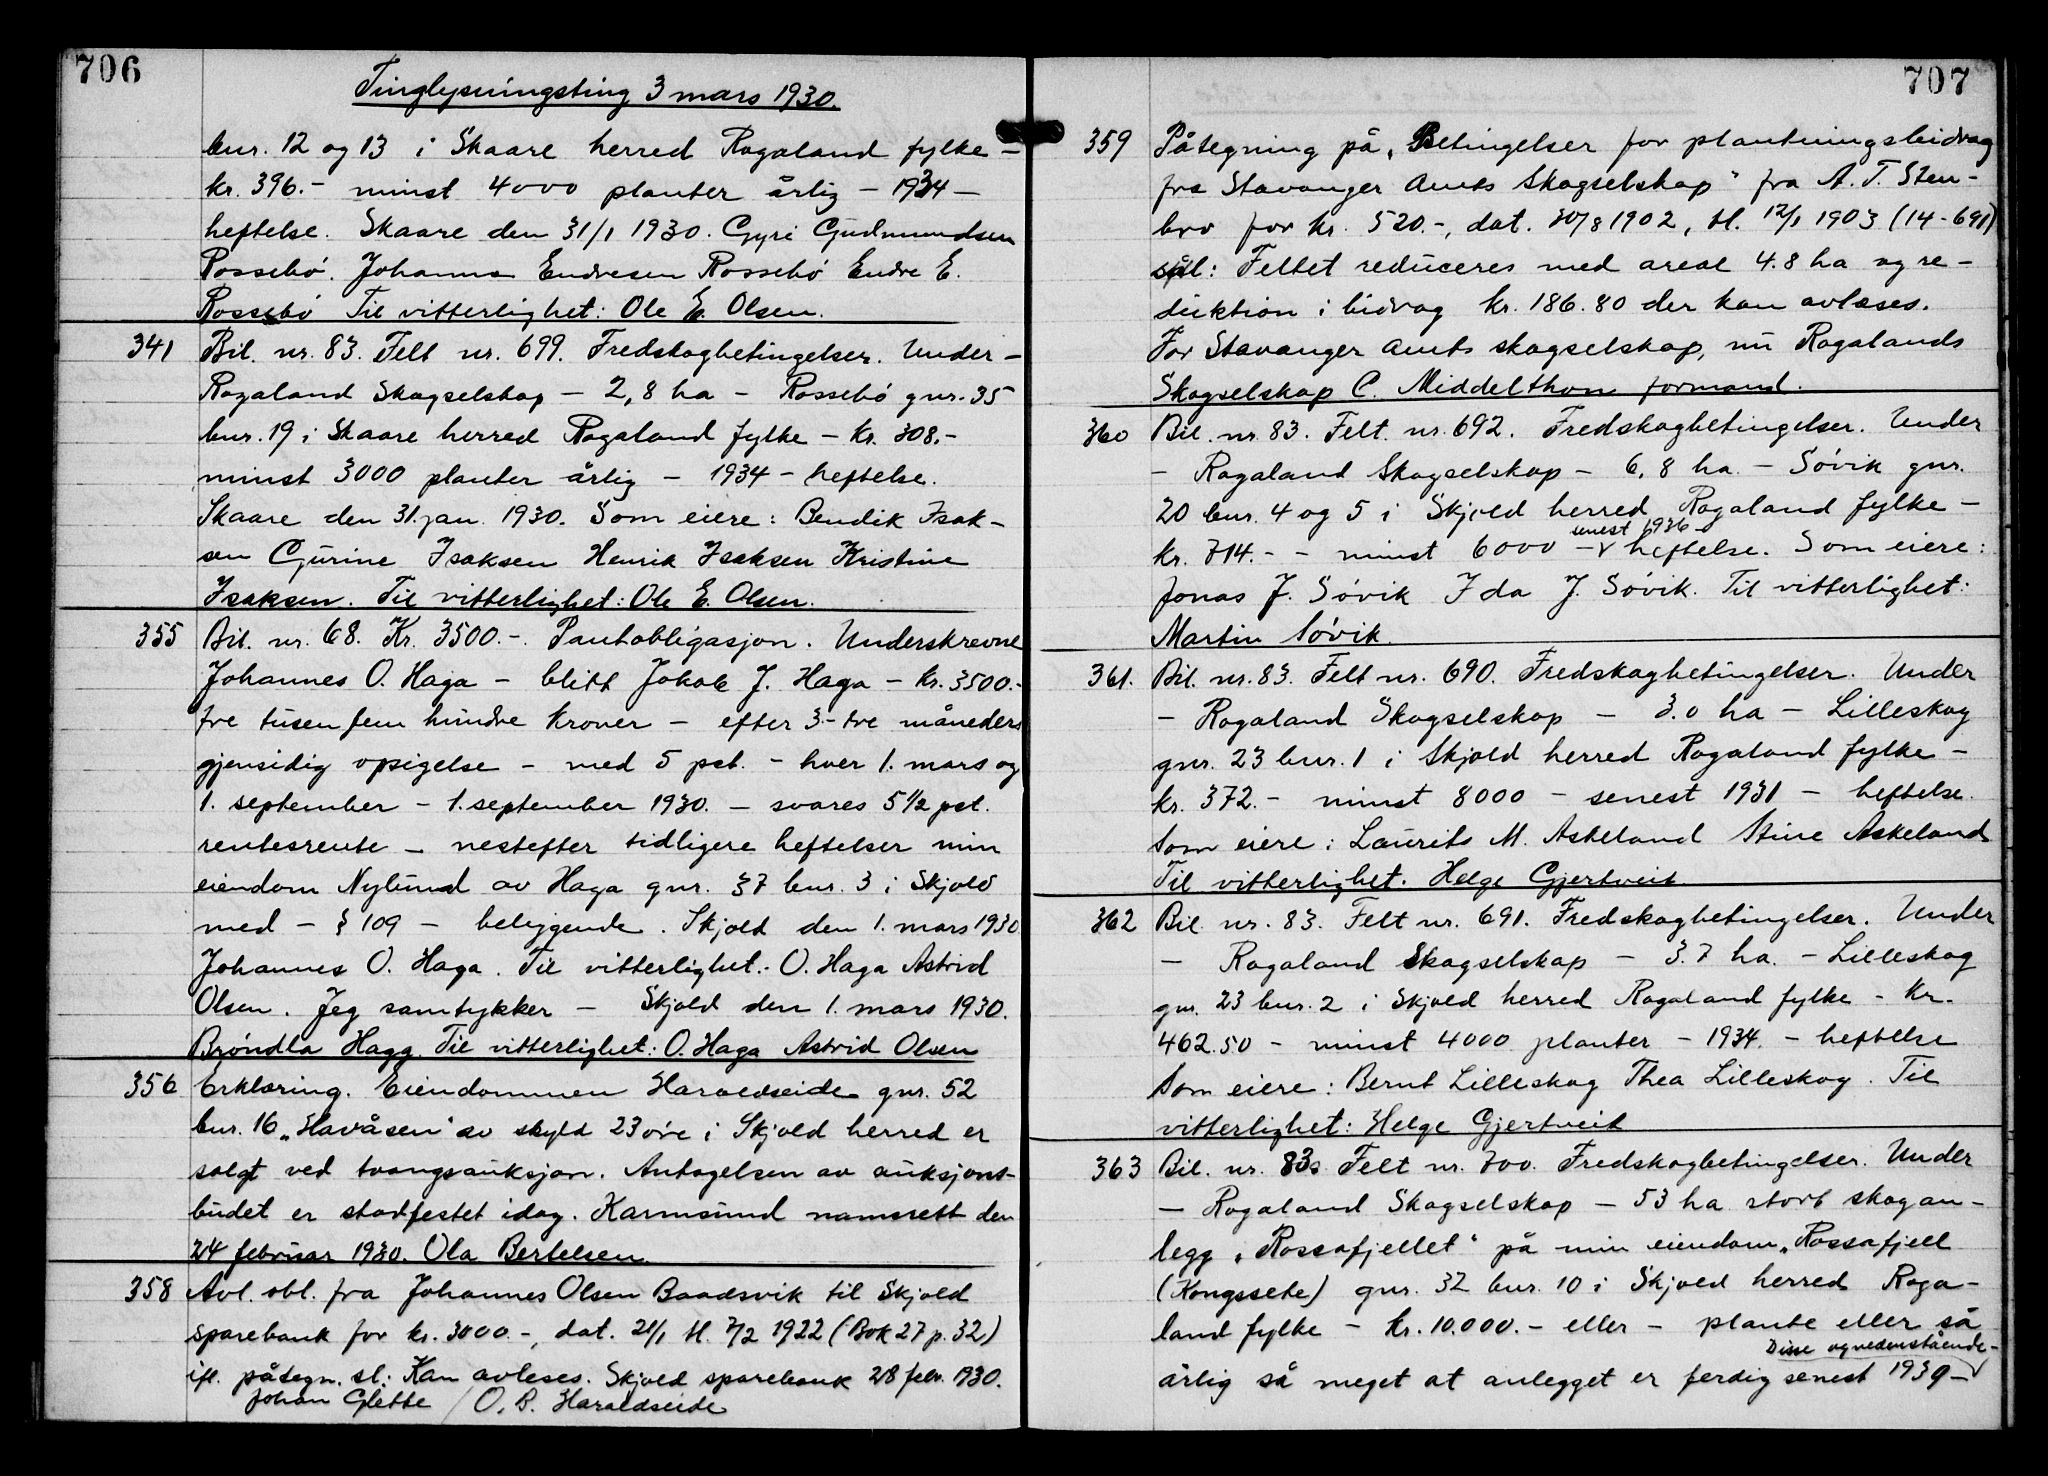 706
Tinglysningsting 3 mars 1930.
bnr. 12 og 13 i Skaare herred Rogaland fylke —
kr. 396.- minst 4000 planter årlig — 1934 —
heftelse. Skaare den 31/1 1930. Gyri Gudmundsen
Rossebø. Johanna Endresen Rossebø Endre E.
Rossebø Til vitterlighet: Ole E. Olsen.
341 Bil. nr. 83. Felt nr. 699. Fredskogbetingelser. Under —
Rogaland Skogselskap — 2,8 ha — Rossebø gnr. 35
bnr. 19 i Skaare herred Rogaland fylke — kr. 308.-
minst 3000 planter årlig — 1934 — heftelse.
Skaare den 31. jan. 1930. Som eiere: Bendik Isak-
sen Gurine Isaksen Henrik Isaksen Kristine
Isaksen. Til vitterlighet: Ole E. Olsen.
355 Bil. nr. 68. Kr. 3500.-. Pantobligasjon. Underskrevne
Johannes O. Haga — blitt Jakob J. Haga — kr. 3500.-
tre tusen fem hundre kroner — efter 3- tre måneders
gjensidig opsigelse — med 5 pct. — hver 1. mars og
1. september — 1. september 1930. — svares 5 1/2 pct.
rentesrente — nestefter tidligere heftelser min
eiendom Nylund av Haga gnr. 37 bnr. 3 i Skjold
med — § 109 — beleggende. Skjold den 1. mars 1930
Johannes O. Haga. Til vitterlighet: O. Haga Astrid
Olsen. Jeg samtykker — Skjold den 1. mars 1930.
Brøndla Hagg. Til vitterlighet: O. Haga Astrid Olsen
356 Erklæring. Eiendommen Haraldseide gnr. 52
bnr. 16 „Havåsen" av skyld 23 øre i Skjold herred er
solgt ved tvangsauksjon. Antagelsen av auksjons-
budet er stadfestet idag. Karmsund namsrett den
24 februar 1930. Ola Bertelsen.
358 Avl. obl. fra Johannes Olsen Baadsvik til Skjold
sparebank for kr. 3000.-, dat. 21/1 tl. 7/2 1922 (Bok 27 p. 32)
ifl. påtegn. sl: Kan avleses. Skjold sparebank 28 febr. 1930.
Johan Glette / O. B. Haraldseide
707
359 Påtegning på „Betingelser for plantningsbidrag
fra Stavanger Amts Skogselskap" fra A. T. Sten-
bro for kr. 520.-, dat. 30/8 1902, tl. 12/1 1903 (14-691)
sål: Feltet reduceres med areal 4.8 ha og re-
duktion i bidrag kr. 186.80 der kan avlæses.
For Stavanger Amts skogselskap, nu Rogalands
Skogselskap C. Middelthon formand.
360 Bil. nr. 83. Felt. nr. 692. Fredskogbetingelser. Under
— Rogaland Skogselskap — 6,8 ha. — Søvik gnr.
20 bnr. 4 og 5 i Skjold herred Rogaland fylke —
senest 1936 —
kr. 714.- — minst 6000 — heftelse. Som eiere:
Jonas J. Søvik Ida J. Søvik. Til vitterlighet:
Martin Søvik.
361. Bil. nr. 83. Felt nr. 690. Fredskogbetingelser. Under
— Rogaland Skogselskap — 3.0 ha — Lilleskog
gnr. 23 bnr. 1 i Skjold herred Rogaland fylke —
kr. 372.- minst 8000 — senest 1931 — heftelse.
Som eiere: Laurits M. Askeland Stine Askeland
Til vitterlighet. Helge Gjertveit
362 Bil. nr. 83. Felt nr. 691. Fredskogbetingelser. Under
— Rogaland Skogselskap — 3.7 ha. — Lilleskog
gnr. 23 bnr. 2 i Skjold herred Rogaland fylke — kr.
462.50 — minst 4000 planter — 1934. — heftelse
Som eiere: Bernt Lilleskog Thea Lilleskog. Til
vitterlighet: Helge Gjertveit
363 Bil. nr. 83. Felt nr. 700. Fredskogbetingelser. Under
— Rogaland Skogselskap — 53 ha stort skogan-
legg „Rossafjellet" på min eiendom „Rossafjell
(Kongssete) gnr. 32 bnr. 10 i Skjold herred Roga-
land fylke — kr. 10.000.- eller — plante eller så
Disse og nedenstående —
årlig så meget at anlegget er ferdig senest 1939 —